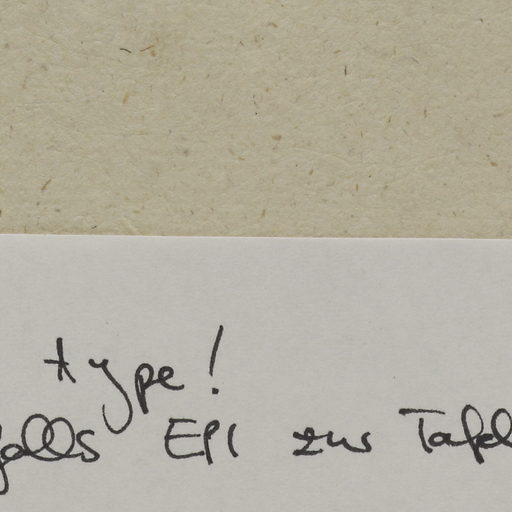 type!
falls EPI zur Tafel